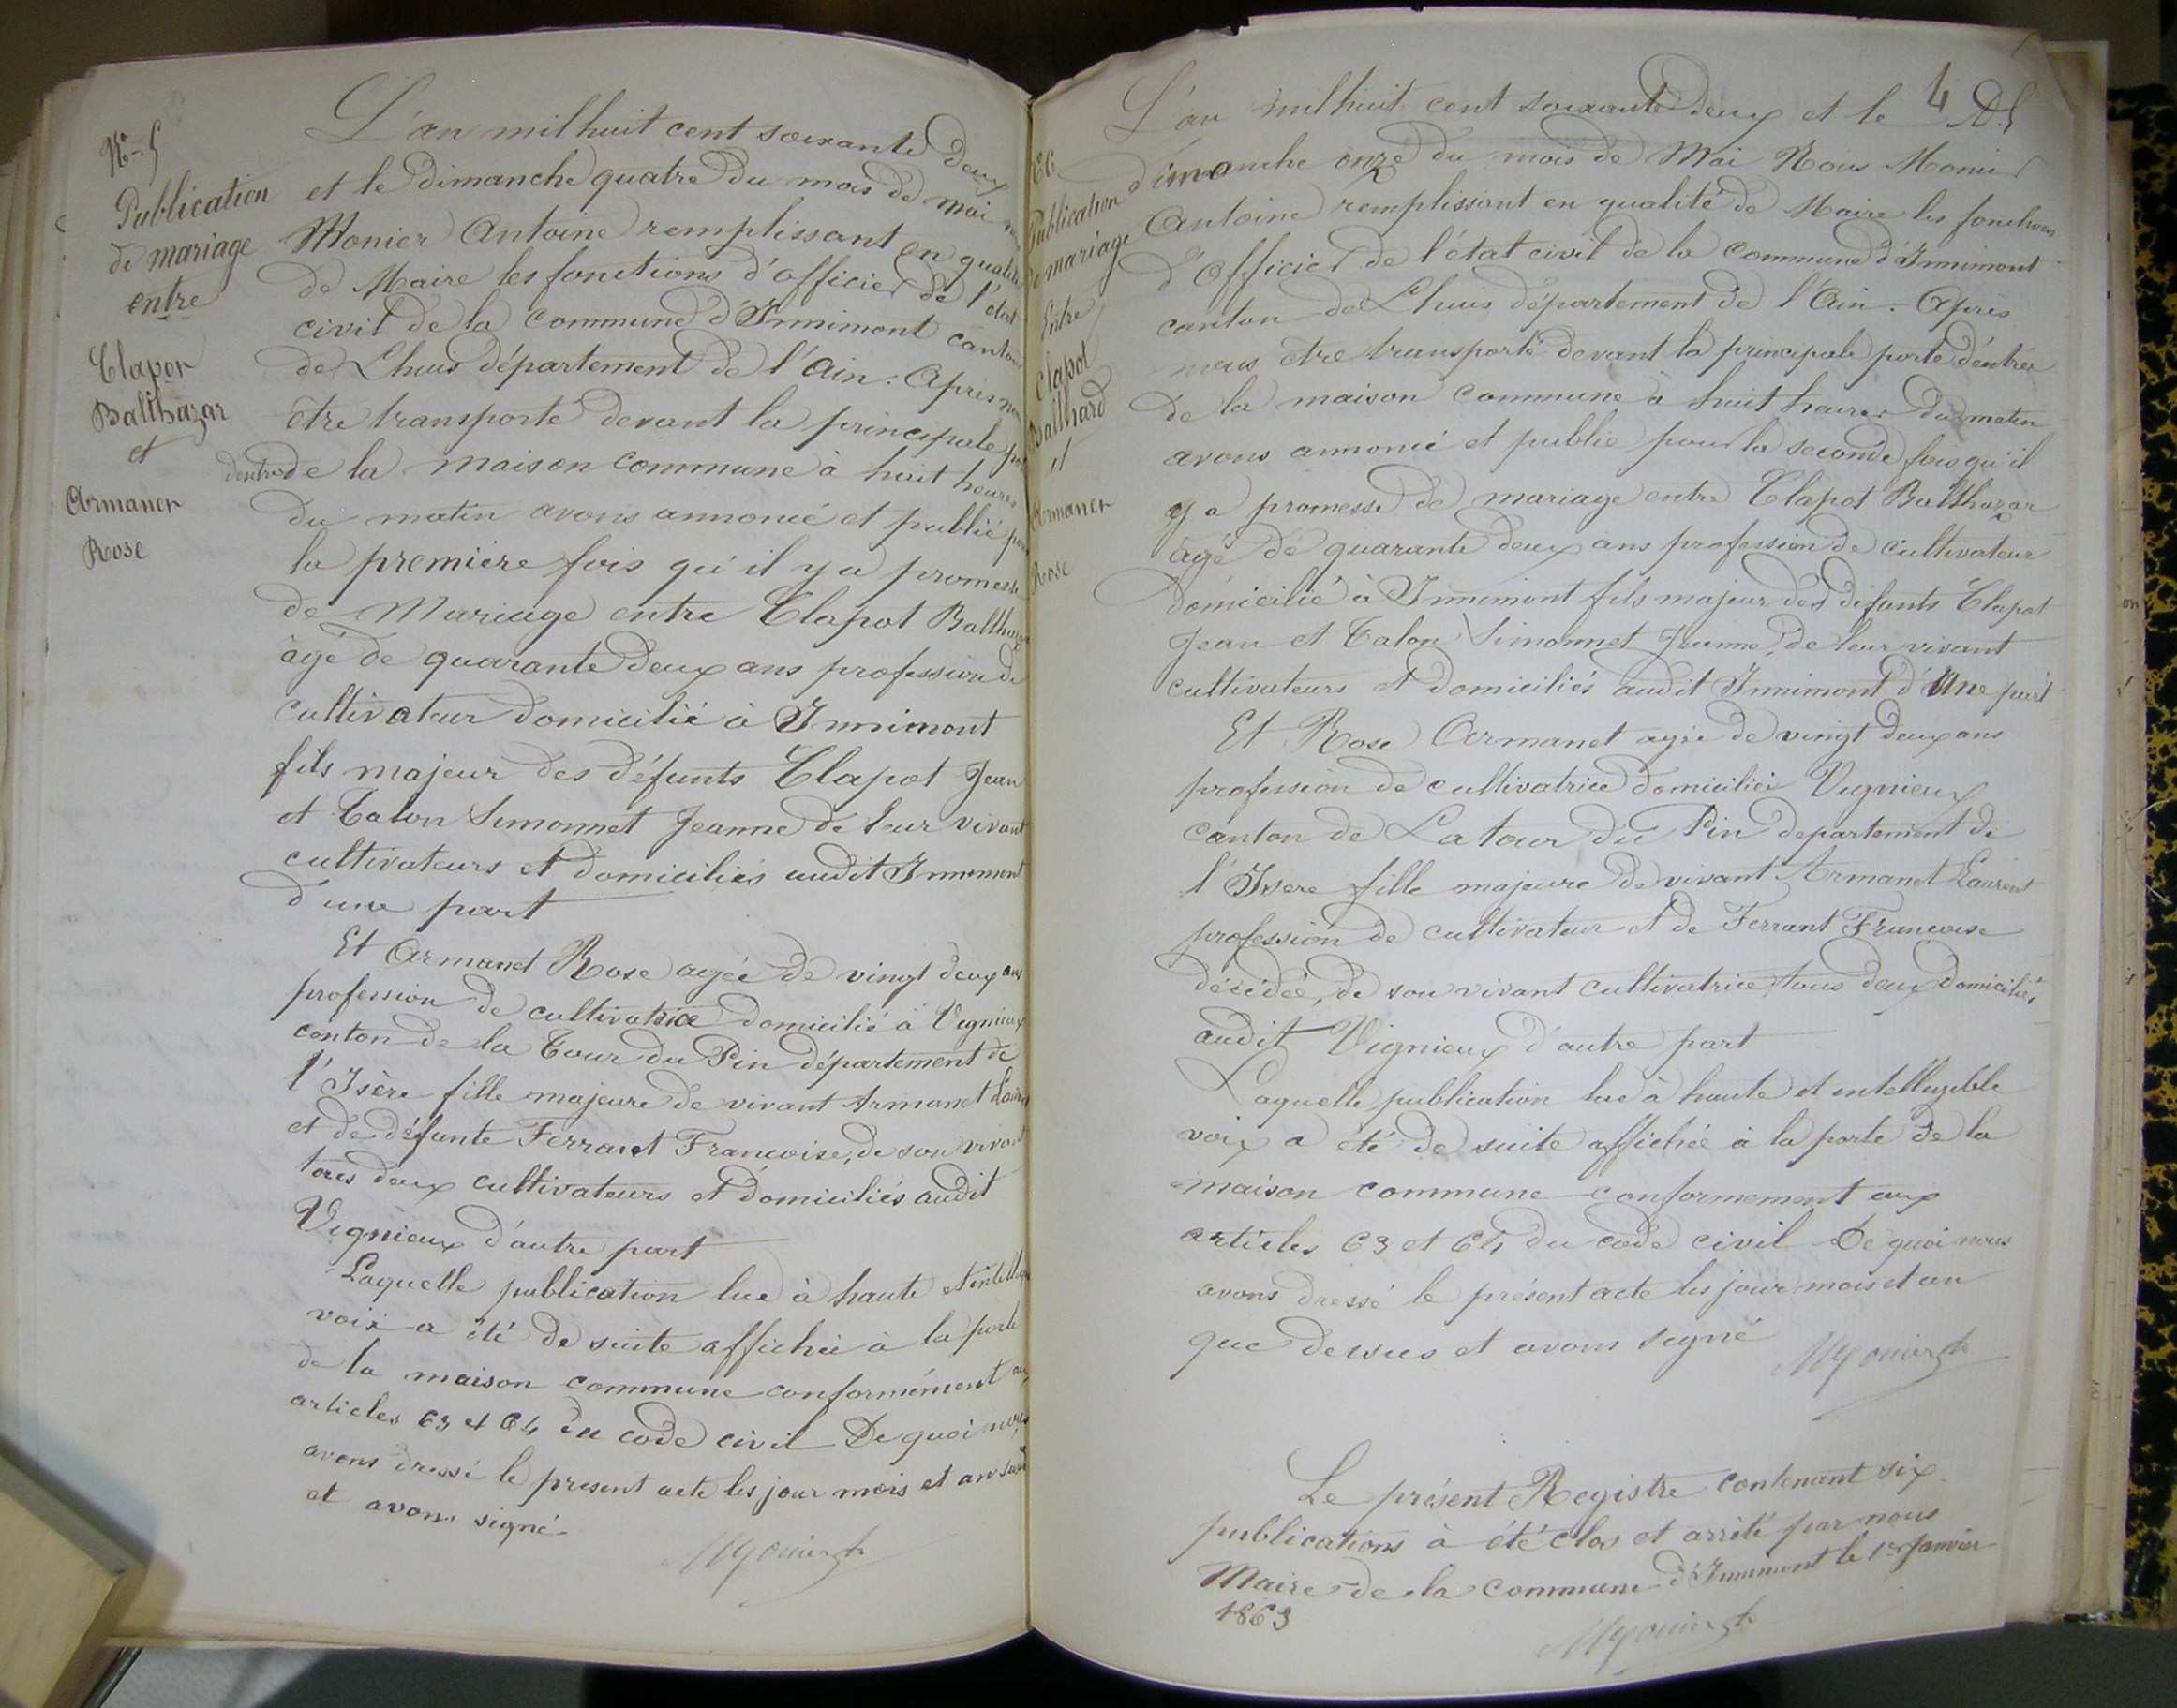 N° 5
Publication
de mariage
entre
Clapon
Balthazar
et
Armaner
Rose
L'an mil huit cent soixante deux
et le dimanche quatre du mois de mai
Monier Antoine remplissant en qualité
de Maire les fonctions d'officier de l'état
civil de la commune d'Innimont canton
de Lhuis département de l'Ain. Après
être transporté devant la principale
d'entrée de la maison commune à huit heures
du matin avons annoncé et publié
la première fois qu'il y a promesse
de Mariage entre Clapot Balthazar
âgé de quarante deux ans profession de
cultivateur domicilié à Innimont
fils majeur des défunts Clapot Jean
et Talon Simonnet Jeanne de leur vivant
cultivateurs et domiciliés audit Innimont
d'une part
Et Armanet Rose agée de vingt deux ans
profession de cultivatrice domicilié à Vignieux
conton de la Tour du Pin département de
l'Isère fille majeure de vivant Armanet
et de défunte Ferrant Francoise, de son vivant
tous deux cultivateurs et domiciliés audit
Vignieux d'autre part
Laquelle publication lue à haute et
voix a été de suite affichée à la porte
de la maison commune conformément
articles 63 et 64 du code civil De quoi nous
avons dressé le présent acte les jour mois et an
et avons signé
4
L'an mil huit cent soixante deux et le
dimanche onze du mois de Mai Nous Monier
Antoine remplissant en qualité de Maire les fonctions
d'Officier de l'état civil de la commune d'Innimont
canton de Lhuis département de l'Ain. Après
nous être transporté devant la principale porte d'entrée
de la maison commune à huit heures du matin
avons annoncé et publié pour la seconde fois qu'il
y a promesse de mariage entre Clapot Balthazar
âgé de quarante deux ans profession de cultivateur
domicilié à Innimont fils majeur des défunts Clapot
Jean et Talon Simonnet Jeanne, de leur vivant
cultivateurs et domiciliés audit Innimont d'Une part
Et Rose Armanet agée de vingt deux ans
profession de cultivatrice domiciliée Vignieux
canton de La tour du Pin departement de
l'Isere fille majeure de vivant Armanet Laurent
profession de cultivateur et de Ferrant Francoise
décédée, de son vivant cultivatrice, tous deux domiciliés
audit Vignieux d'autre part
Laquelle publication lue à haute et intelligible
voix a été de suite affichée à la porte de la
maison commune conformement aux
articles 63 et 64 du code civil De quoi nous
avons dressé le présent acte les jour mois et an
que dessus et avons signé
Publication
de mariage
Entre
Clapot
Balthard
et
Armaner
Rose
Le présent Registre contenant six
publications à été clos et arrêté par nous
Maire de la commune d'Innimont le 1er Janvier
1863